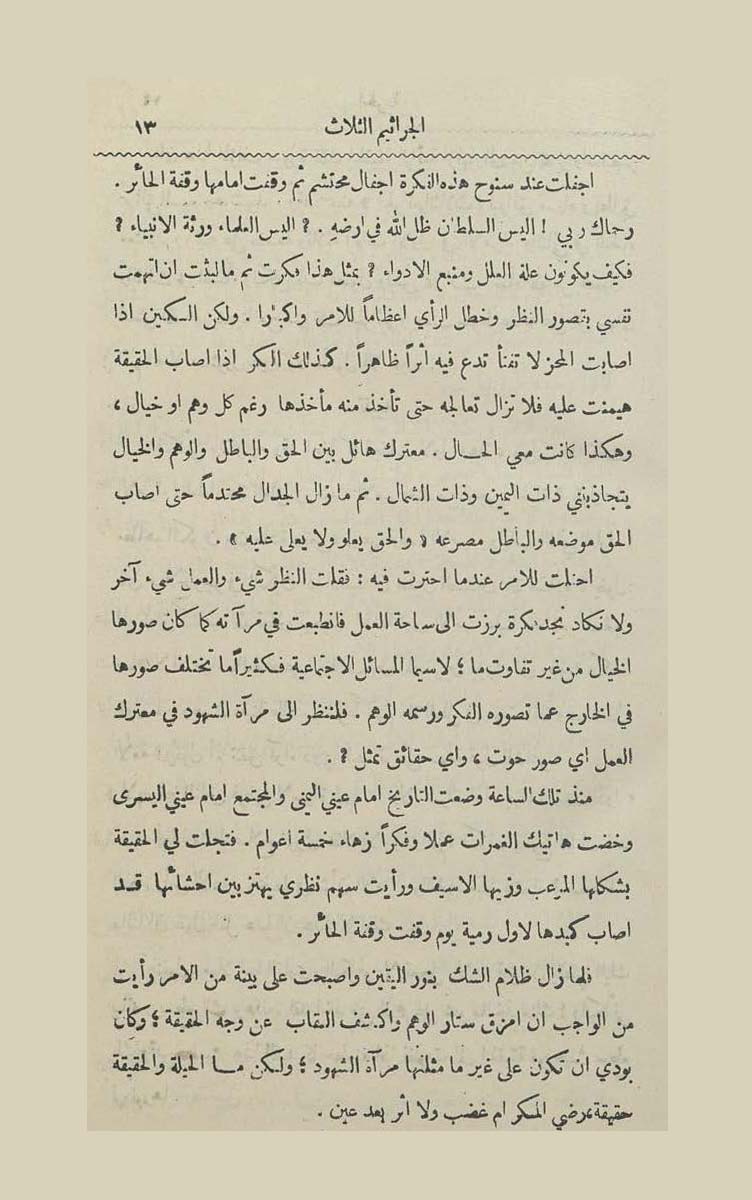 الجراثيم الثلاث ١٣
اجفلت عند سنوح هذه الفكرة اجفال محتشم ثم وقفت امامها وقفة الحائر .
رحماك ربي ! اليس السلطان ظل الله في ارضهِ . ? اليس العلماء ورثة الانبياء ?
فكيف يكونون علة العلل ومنبع الادواء ? بمثل هذا فكرت ثم ما لبثت ان اتهمت
نفسي بقصور النظر وخطل الرأي اعظاماً للامر واكبارا . ولكن السكين اذا
اصابت المحز لا تفتأ تدع فيه أثراً ظاهراً . كذلك الفكر اذا اصاب الحقيقة
هيمنت عليه فلا تزال تعالجه حتى تأخذ منه مأخذها رغم كل وهم او خيال ،
وهكذا كانت معي الحـال . معترك هائل بين الحق والباطل والوهم والخيال
يتجاذبنني ذات اليمين وذات الشمال . ثم ما زال الجدال محتدماً حتى اصاب
الحق موضعه والباطل مصرعه « والحق يعلو ولا يعلى عليه » .
احتلت للامر عندما احترت فيه : فقلت النظر شيء والعمل شيء آخر
ولا نكاد نجد فكرة برزت الى ساحة العمل فانطبعت في مرآته كما كان صورها
الخيال من غير تفاوت ما ؛ لاسيما المسائل الاجتماعية فكثيراً ما تختلف صورها
في الخارج عما تصوره الفكر ورسمه الوهم . فلننظر الى مرآة الشهود في معترك
العمل اي صور حوت ، واي حقائق تمثل ? .
منذ تلك الساعة وضعت التاريخ امام عيني اليمنى والمجتمع امام عيني اليسرى
وخضت هاتيك الغمرات عملا وفكراً زهاء خمسة اعوام . فتجلت لي الحقيقة
بشكلها المرعب وزيها الاسيف ورأيت سهم نظري يهتز بين احشائها قـد
اصاب كبدها لاول رمية يوم وقفت وقفة الحائر .
فلما زال ظلام الشك بنور اليقين واصبحت على بينة من الامر رأيت
من الواجب ان امزق ستار الوهم واكشف النقاب عن وجه الحقيقة ؛ وكان
بودي ان تكون على غير ما مثلتها مرآة الشهود ؛ ولكن مـا الحيلة والحقيقة
حقيقة رضي المفكر ام غضب ولا أثر بعد عين .